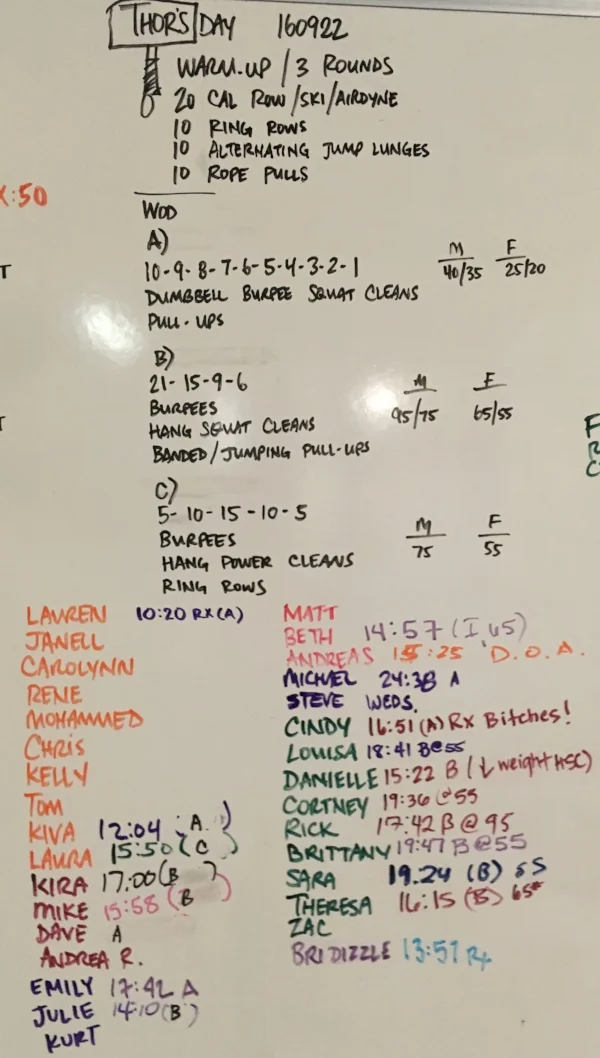 THOR'S DAY 160922
WARM-UP / 3 ROUNDS
20 CAL ROW/SKI/AIRDYNE
10 RING ROWS
10 ALTERNATING JUMP LUNGES
10 ROPE PULLS
:50
WOD
A)
10-9-8-7-6-5-4-3-2-1
DUMBBELL BURPEE SQUAT CLEANS
PULL-UPS
M F
40/35 25/20
T
B)
21-15-9-6
BURPEES
HANG SQUAT CLEANS
BANDED/JUMPING PULL-UPS
M F
95/75 65/55
C)
5-10-15-10-5
BURPEES
HANG POWER CLEANS
RING ROWS
M F
75 55
F
R
C
LAUREN 10:20 RX (A)
JANELL
CAROLYNN
RENE
MOHAMMED
CHRIS
KELLY
TOM
KIVA 12:04 A
LAURA 15:50 (C)
KIRA 17:00 (B)
MIKE 15:58 (B)
DAVE A
ANDREA R.
EMILY 17:42 A
JULIE 14:10 (B)
KURT
MATT
BETH 14:57 (
ANDREAS 15:25 D.O.A.
MICHAEL 24:38 A
STEVE WEDS.
CINDY 16:51 (A) Rx Bitches!
LOUISA 18:41 B@55
DANIELLE 15:22 B (↓ weight HSC)
CORTNEY 19:36 @55
RICK 17:42 B @ 95
BRITTANY 19:47 B @ 55
SARA 19.24 (B) 55
THERESA 16:15 (B) 65#
ZAC
BRI DIZZLE 13:57 Rx